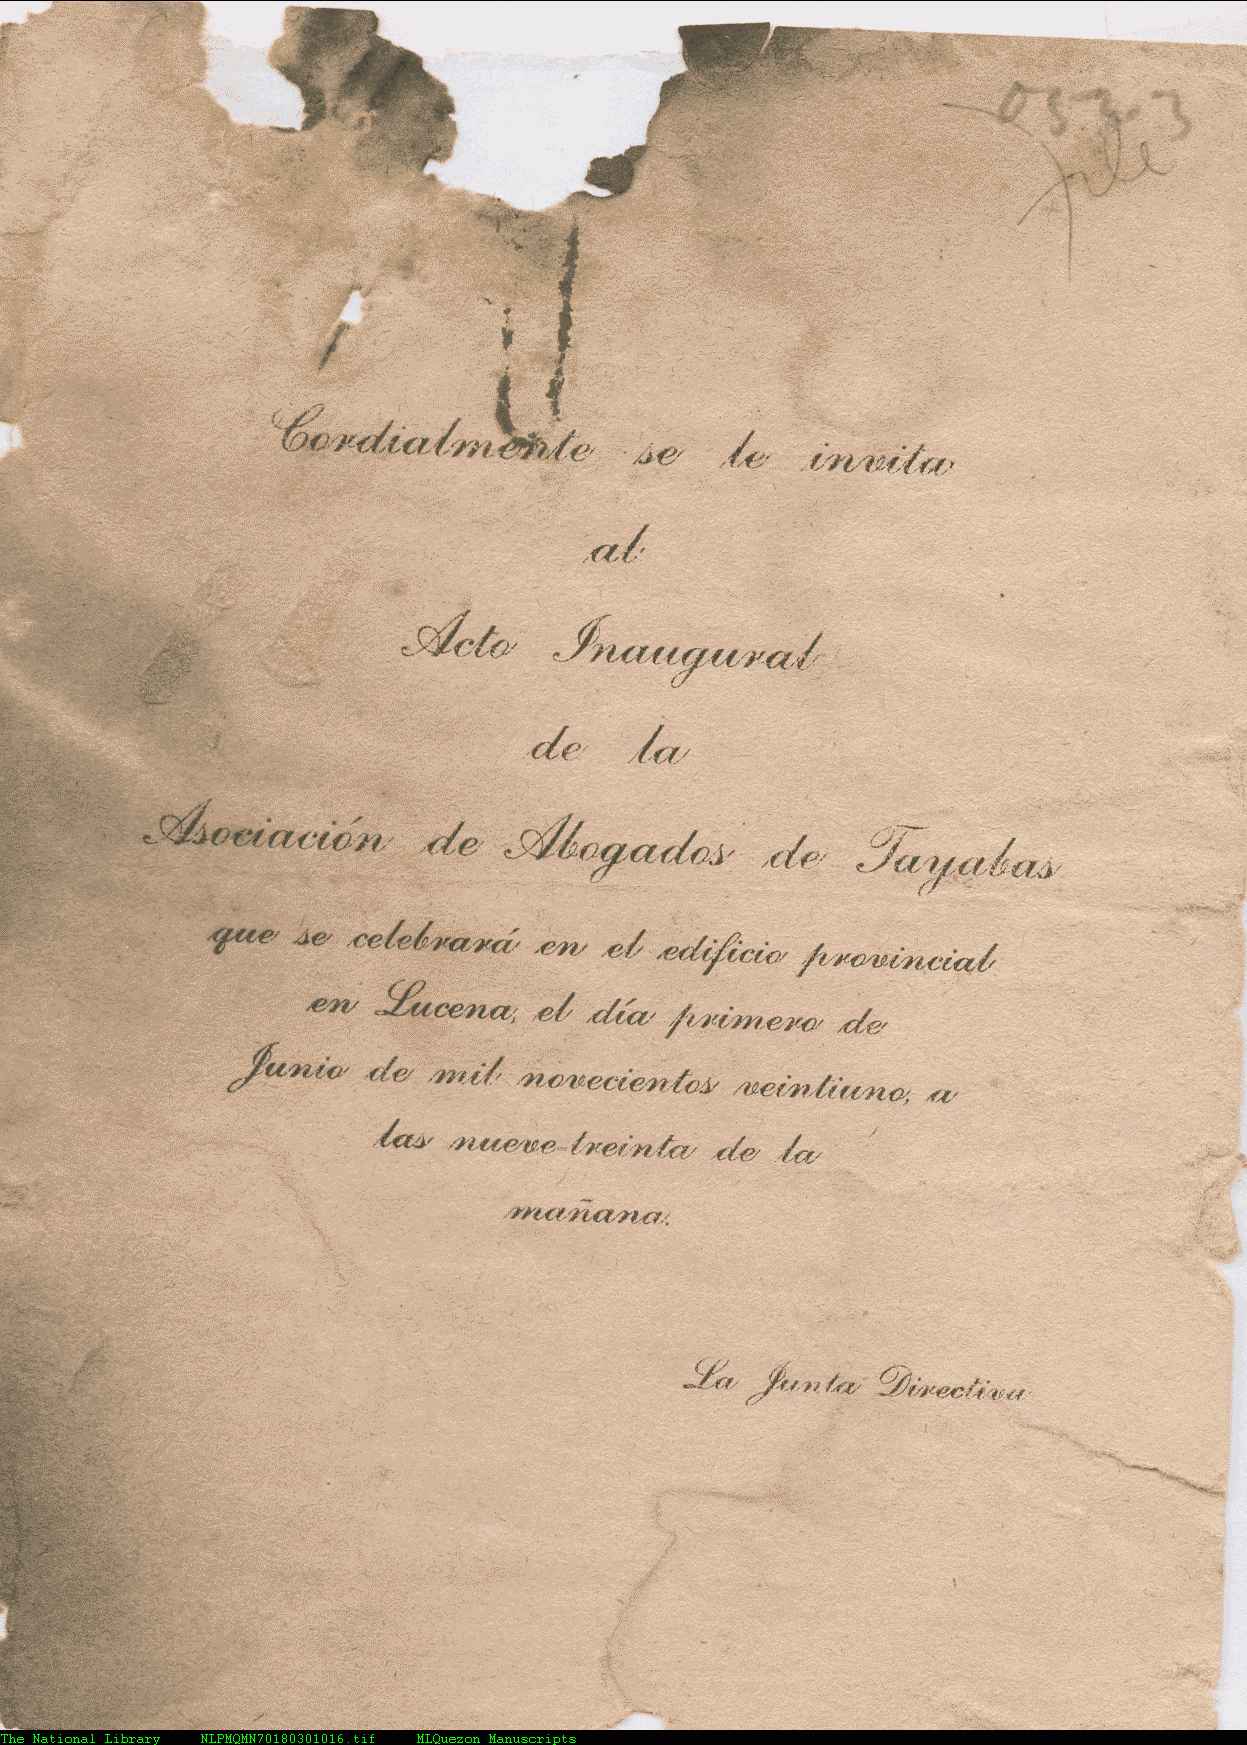 053.3
file
Cordialmente se le invita
al
Acto Inaugural
de la
Asociación de Abogados de Tayabas
que se celebrará en el edificio provincial
en Lucena, el día primero de
Junio de mil novecientos veintiuno, a
las nueve-treinta de la
mañana.
La Junta Directiva
The National Library NLPMQMN70180301016.tif MLQuezon Manuscripts